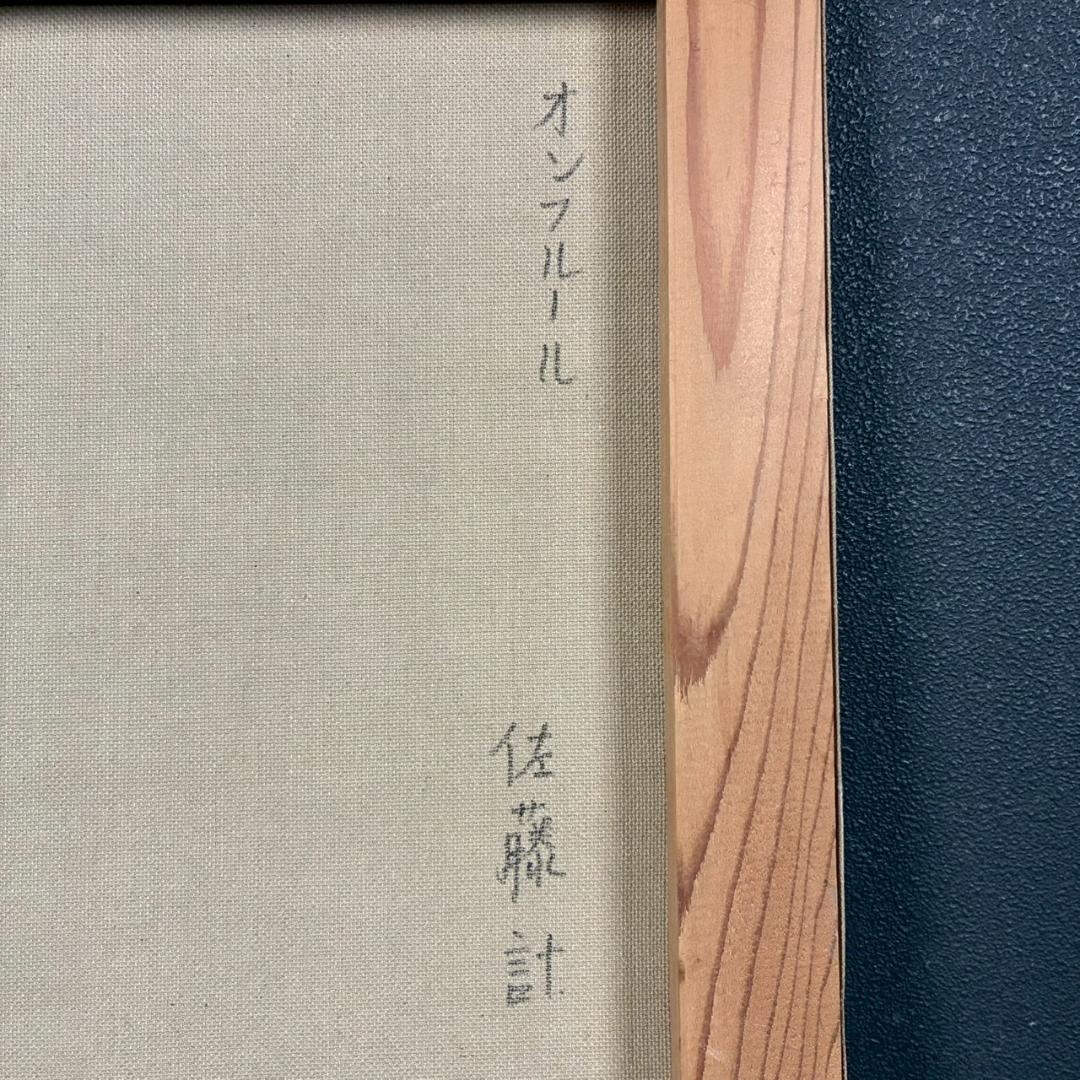 オンフルール
佐藤計